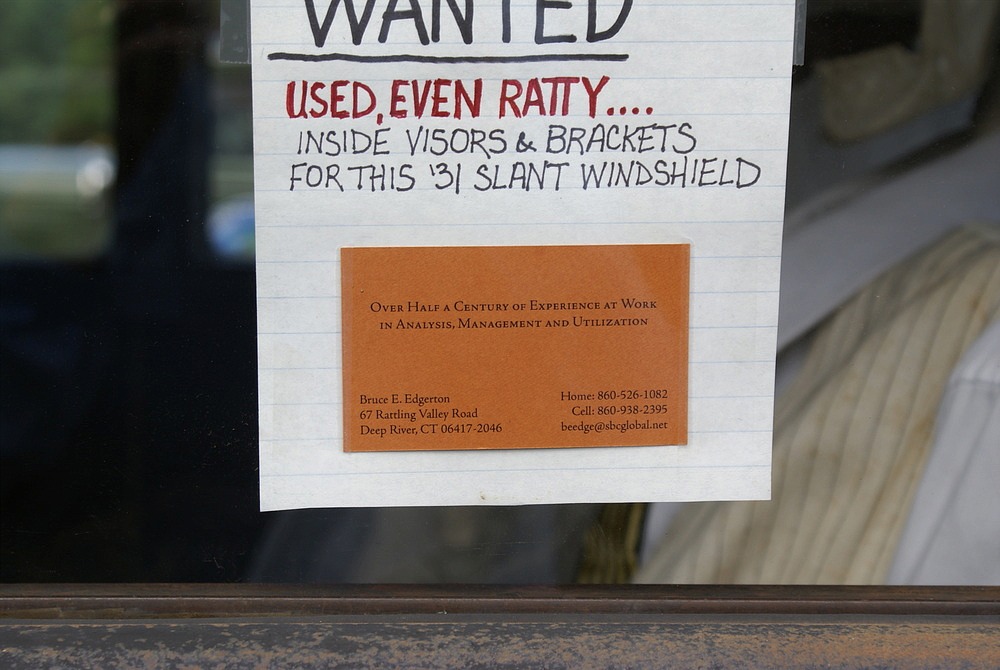 WANTED
USED, EVEN RATTY....
INSIDE VISORS & BRACKETS
FOR THIS '31 SLANT WINDSHIELD
Over Half a Century of Experience at Work
in Analysis, Management and Utilization
Bruce E. Edgerton
67 Rattling Valley Road
Deep River, CT 06417-2046
Home: 860-526-1082
Cell: 860-938-2395
beedge@sbcglobal.net